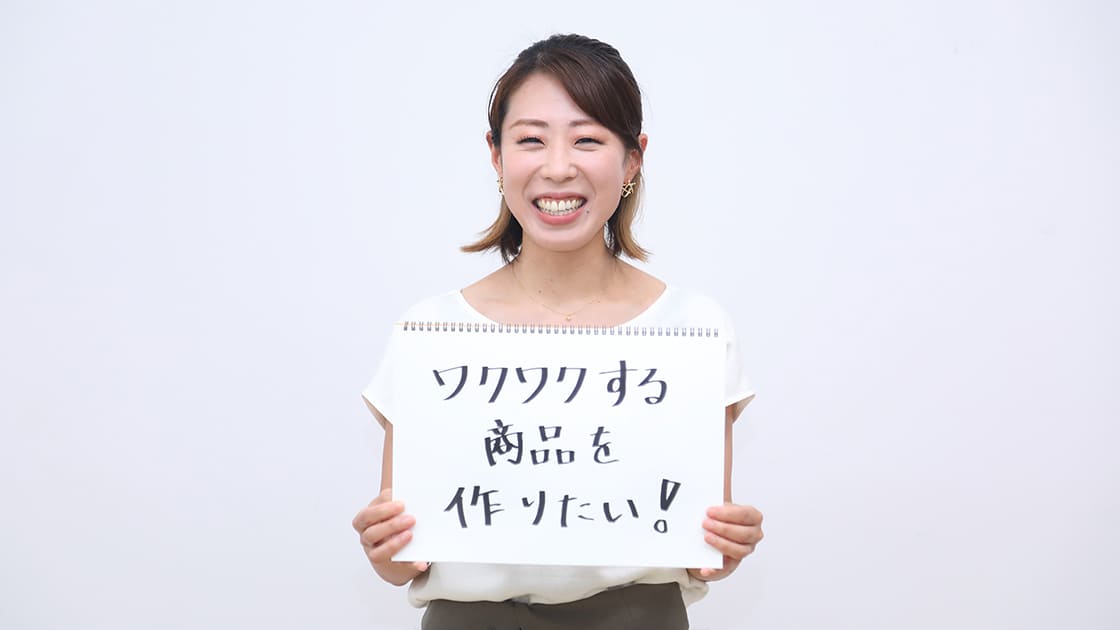 ワクワクする
商品を
作りたい!